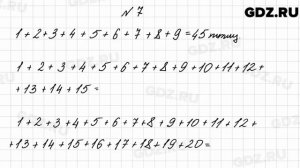 GDZ.RU
№ 7
1+2+3+4+5+6+7+8+9=45 птиц
1+2+3+4+5+6+7+8+9+10+11+12+
+13+14+15=
1+2+3+4+5+6+7+8+9+10+11+12+
+13+14+15+16+17+18+19+20=
GDZ.RU